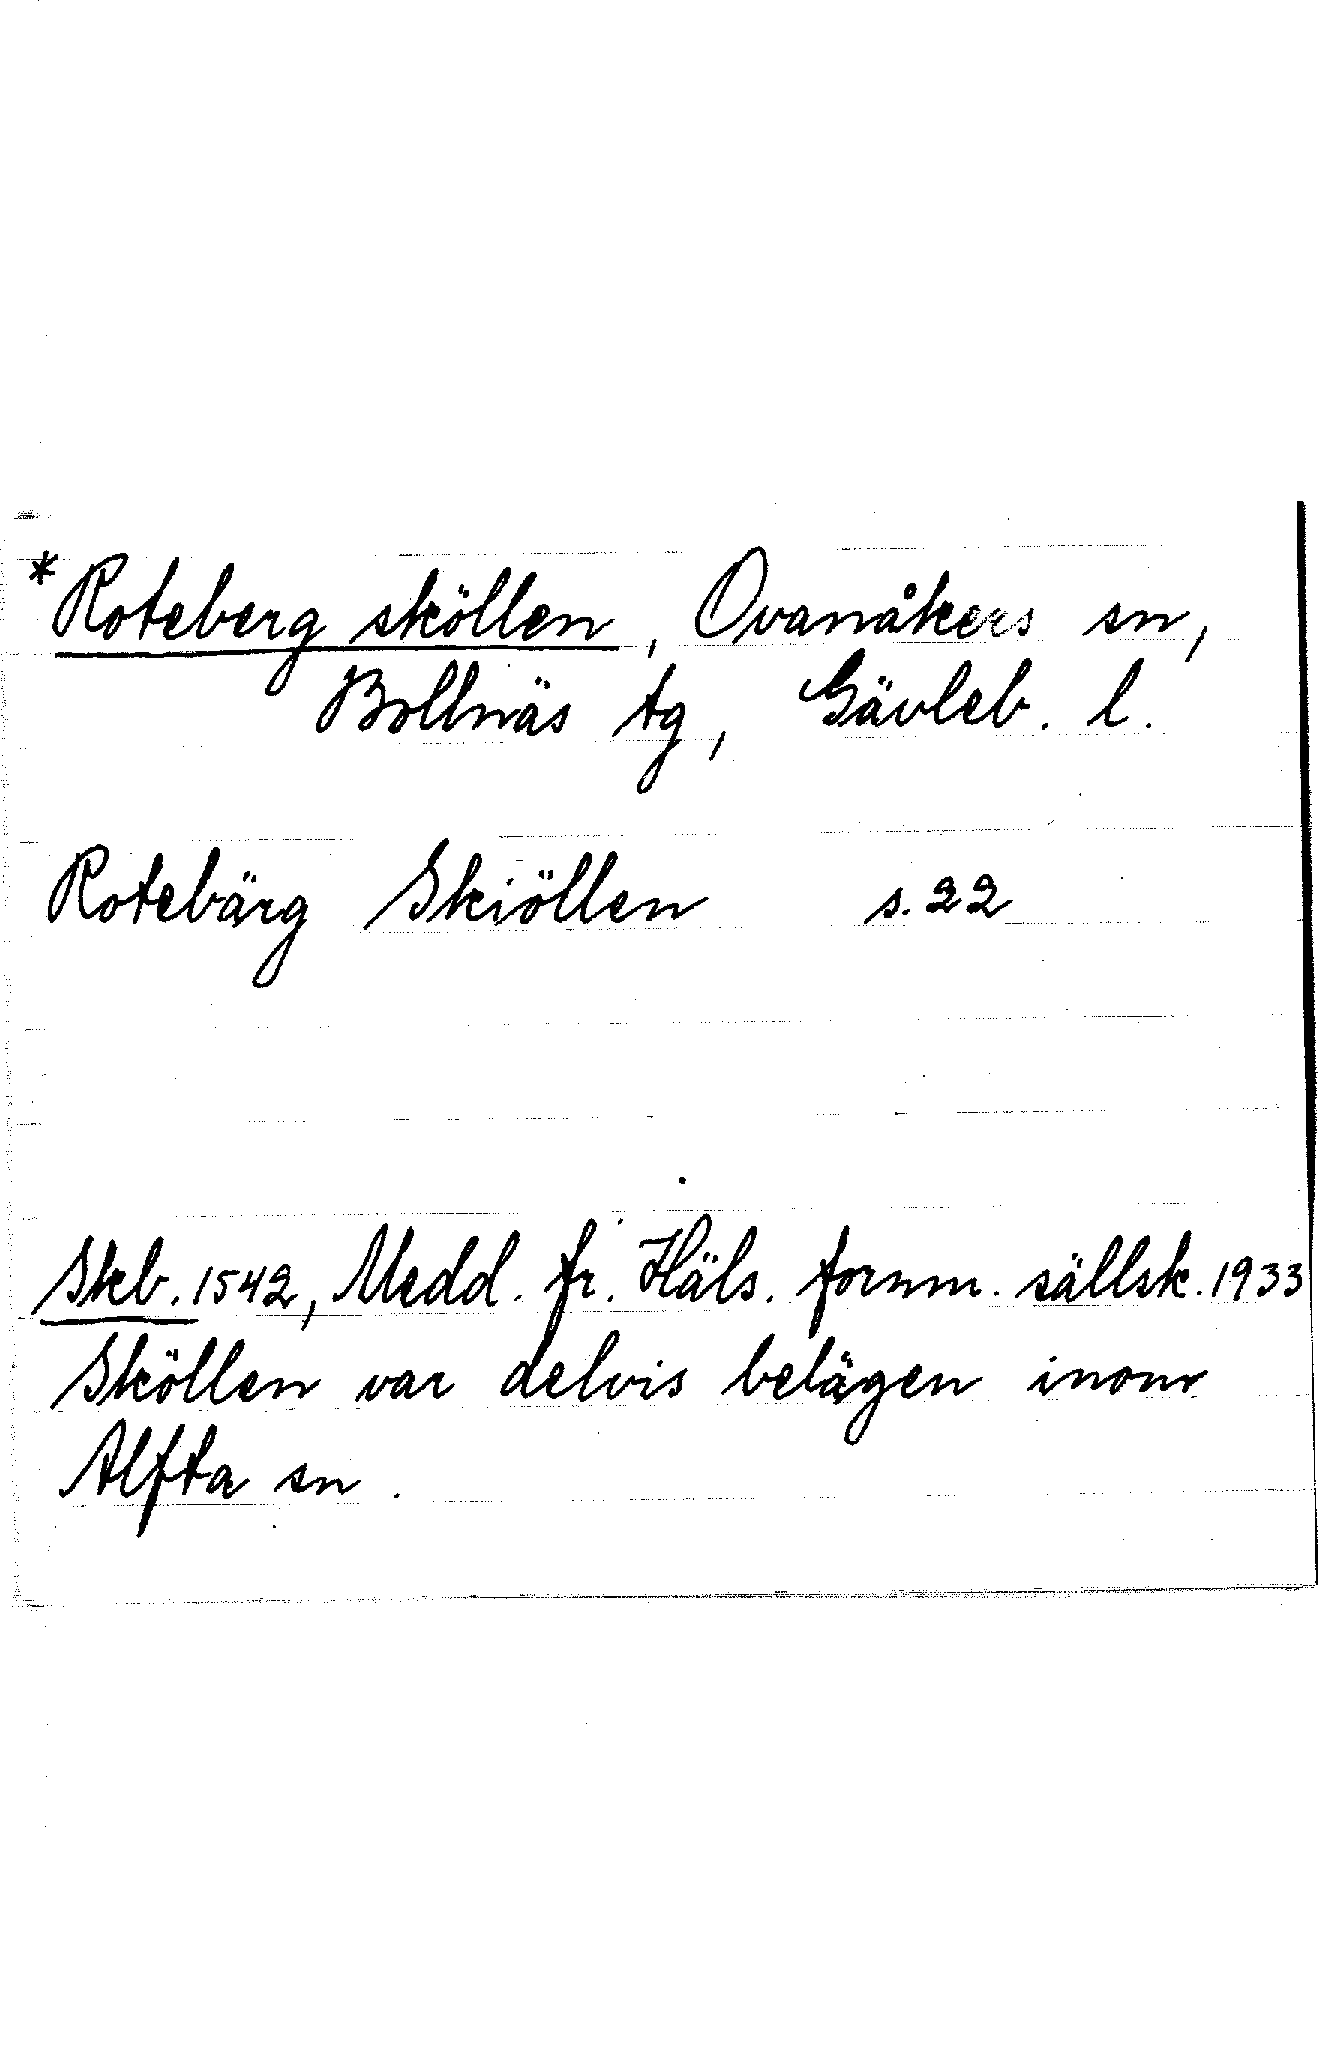 *Roteberg sköllen, Ovanåkers sn,
Bollnäs tg, Gävleb. l.
Rotebärg Skiöllen s. 22
Skb. 1542, Medd. fr. Häls. fornm. sällsk. 1933
Sköllen var delvis belägen inom
Alfta sn.